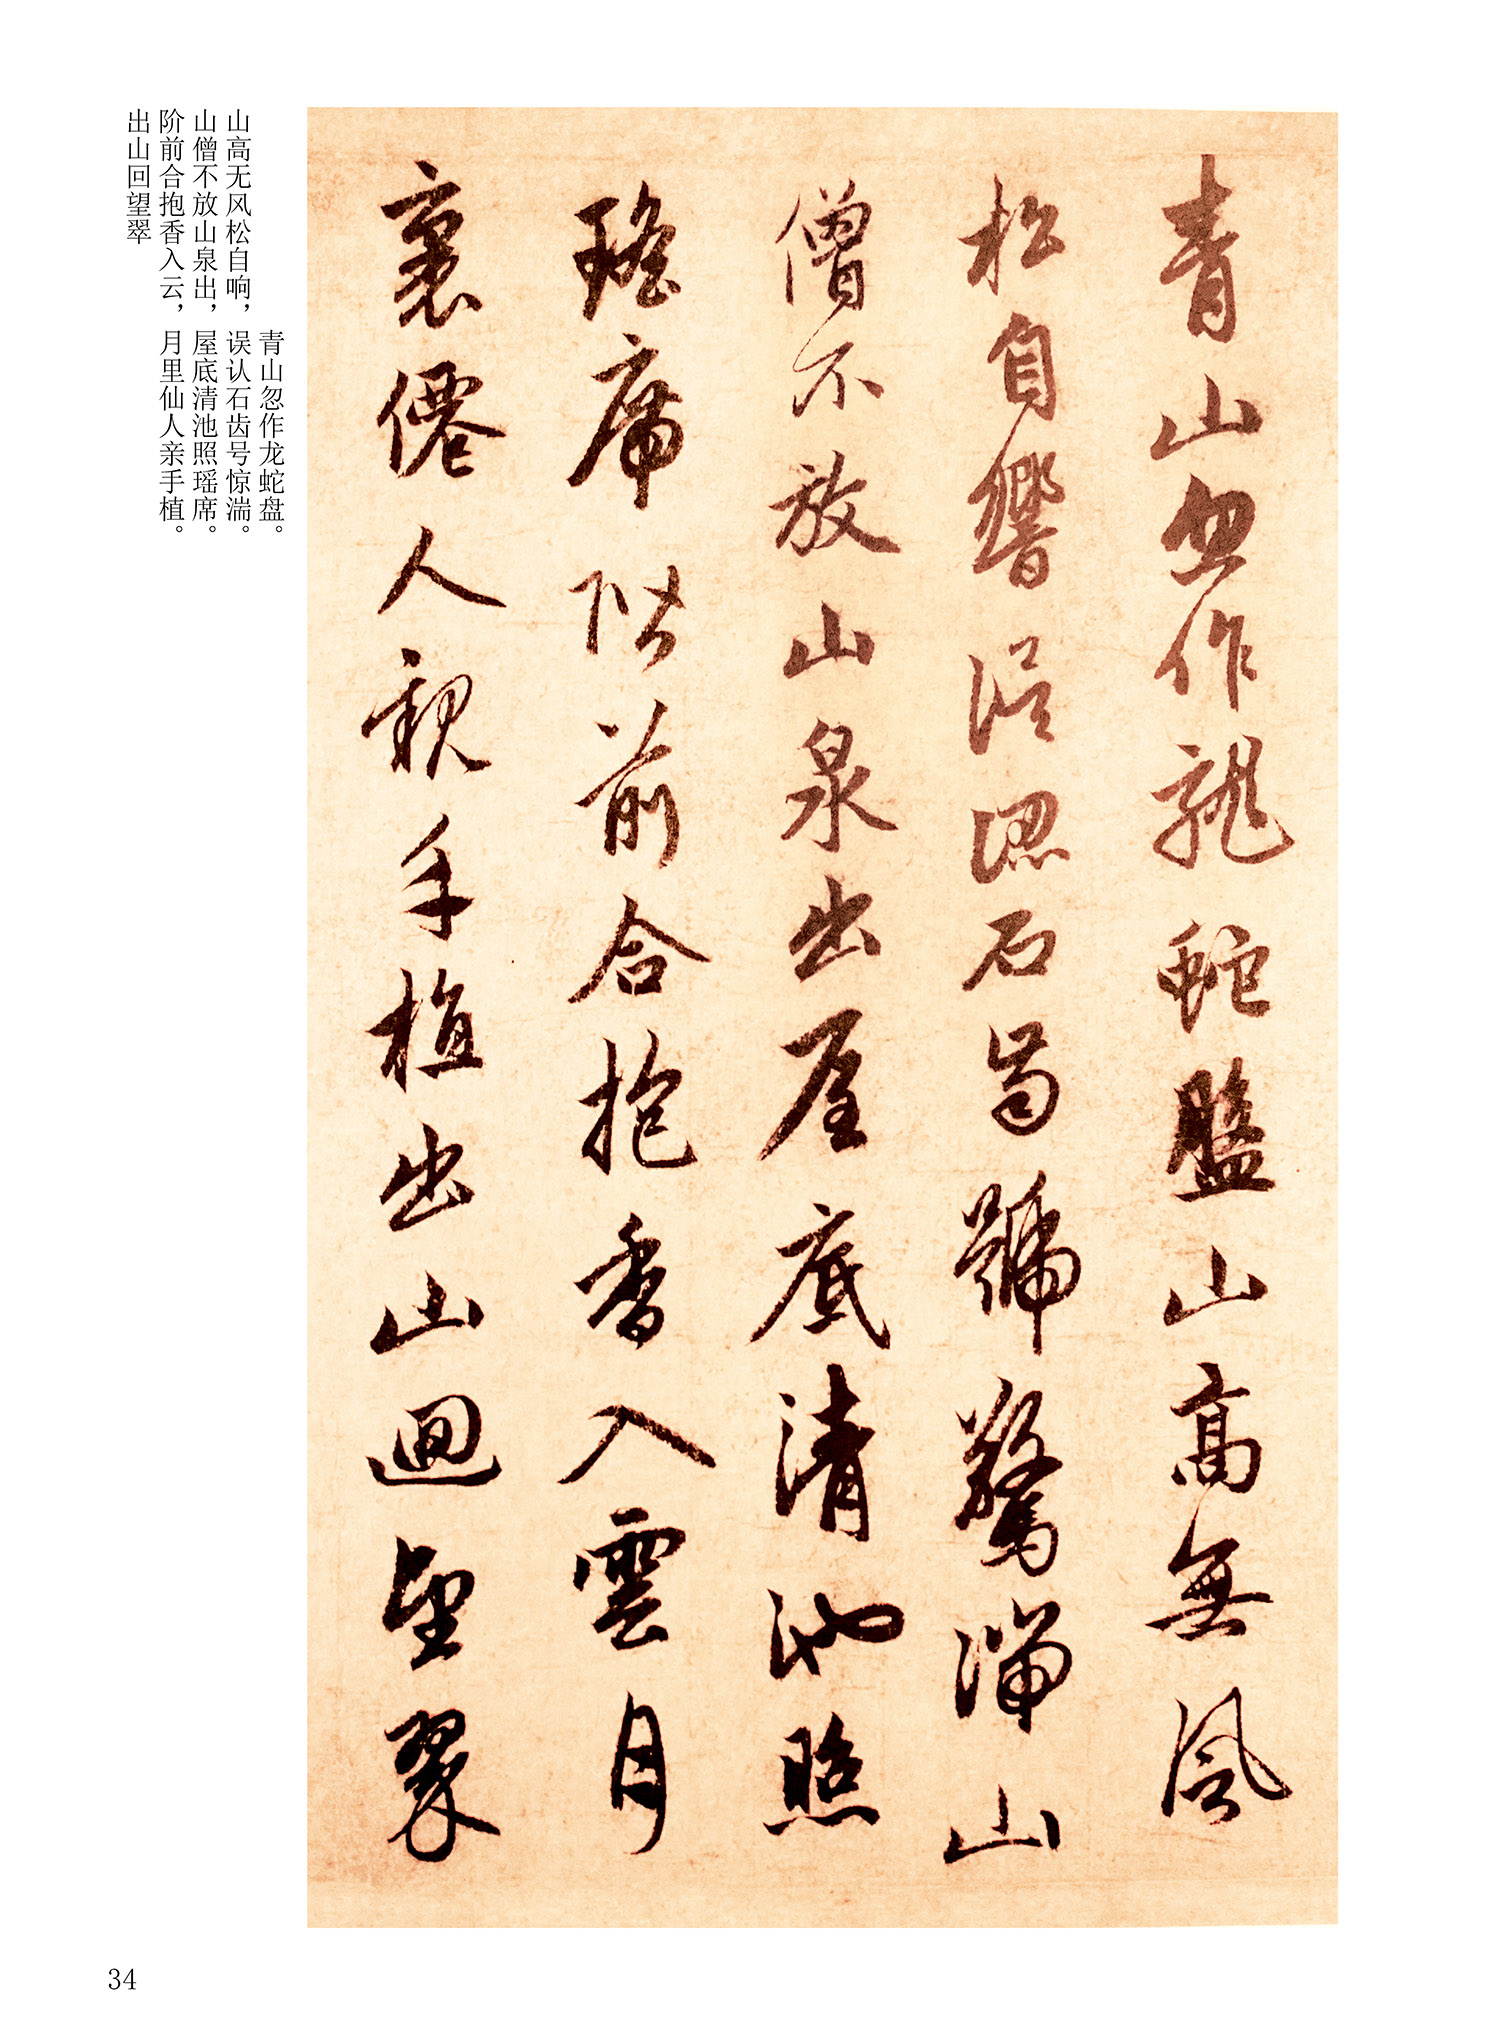 青山忽作龍蛇盤山高無風
松自響誤認石齒號驚湍山
僧不放山泉出屋底清池照
瑤席階前合抱香入雲月
裏僊人親手植出山迴望翠
青山忽作龙蛇盘。
山高无风松自响，误认石齿号惊湍。
山僧不放山泉出，屋底清池照瑶席。
阶前合抱香入云，月里仙人亲手植。
出山回望翠
34